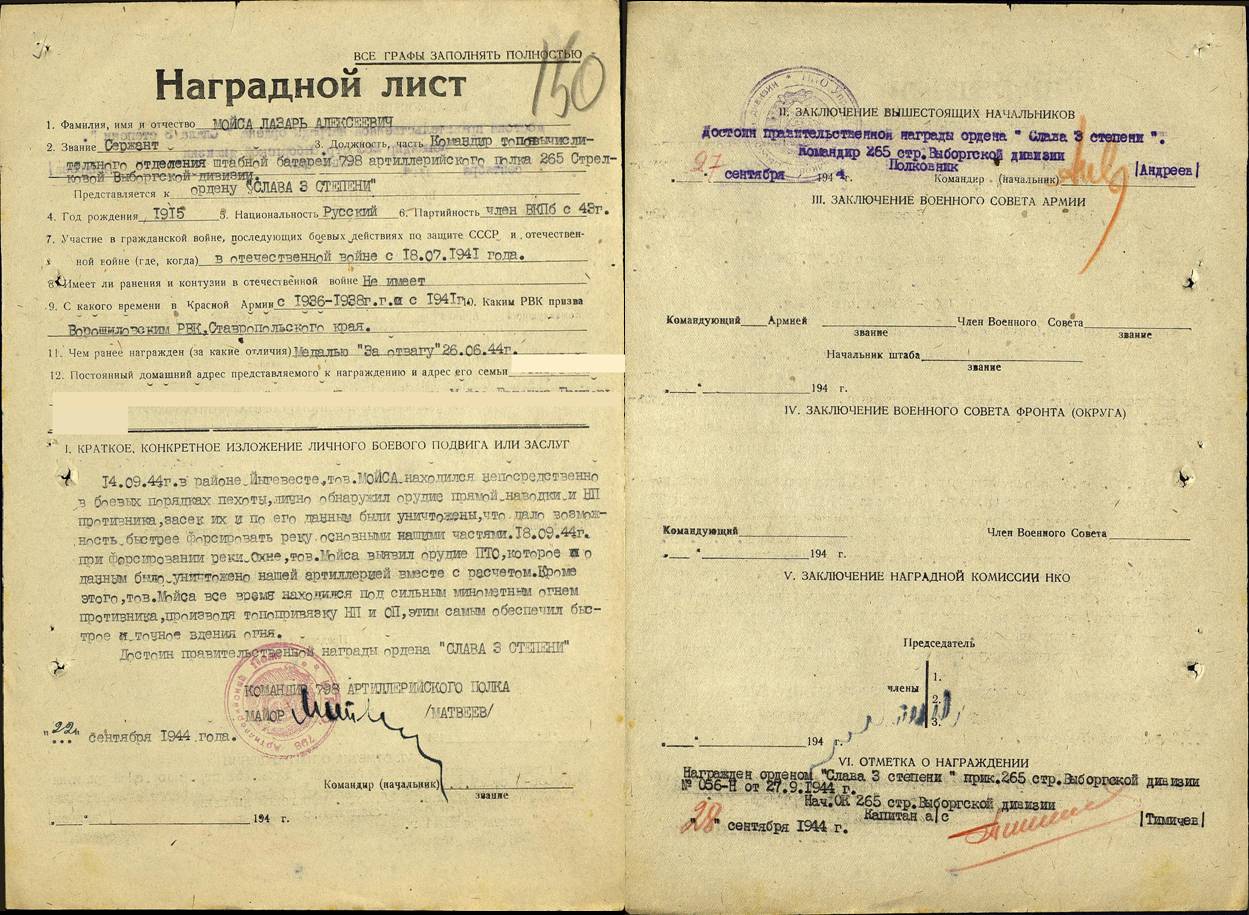 ВСЕ ГРАФЫ ЗАПОЛНЯТЬ ПОЛНОСТЬЮ
150
Наградной лист
1. Фамилия, имя и отчество МОЙСА ЛАЗАРЬ АЛЕКСЕЕВИЧ
2. Звание Сержент 3. Должность, часть Командир топовычисли-
тельного отделения штабной батареи 798 артиллерийского полка 265 Стрел-
ковой Выборгской дивизии.
Представляется к ордену "СЛАВА 3 СТЕПЕНИ"
4. Год рождения 1915 5. Национальность Русский 6. Партийность член ВКПб с 43г.
7. Участие в гражданской войне, последующих боевых действиях по защите СССР и отечествен-
ной войне (где, когда) в отечественной войне с 18.07.1941 года.
8. Имеет ли ранения и контузии в отечественной войне Не имеет
9. С какого времени в Красной Армии с 1936-1938г.г.и с 1941г. 10. Каким РВК призва
Ворошиловским РВК, Ставропольского края.
11. Чем ранее награжден (за какие отличия) Медалью "За отвагу" 26.06.44г.
12. Постоянный домашний адрес представляемого к награждению и адрес его семьи
I. КРАТКОЕ, КОНКРЕТНОЕ ИЗЛОЖЕНИЕ ЛИЧНОГО БОЕВОГО ПОДВИГА ИЛИ ЗАСЛУГ
14.09.44г.в районе Йыгевесте, тов.МОЙСА находился непосредственно
в боевых порядках пехоты, лично обнаружил орудие прямой наводки и НП
противника, засек их и по его данным были уничтожены, что дало возмож-
ность быстрее форсировать реку основными нашими частями. 18.09.44г.
при форсировании реки Охне, тов.Мойса выявил орудие ПТО, которое по
данным было уничтожено нашей артиллерией вместе с расчетом. Кроме
этого, тов.Мойса все время находился под сильным минометным огнем
противника, производя топопривязку НП и ОП, этим самым обеспечил быс-
трое и точное вдения огня.
Достоин правительственной награды ордена "СЛАВА 3 СТЕПЕНИ"
КОМАНДИР 798 АРТИЛЛЕРИЙСКОГО ПОЛКА
МАЙОР /МАТВЕЕВ/
"22" сентября 1944 года.
Командир (начальник)
звание
" " 194 г.
II. ЗАКЛЮЧЕНИЕ ВЫШЕСТОЯЩИХ НАЧАЛЬНИКОВ
Достоин правительственной награды ордена " Слава 3 степени ".
Командир 265 стр.Выборгской дивизии
Полковник
27 сентября 1944 г. Командир (начальник) |Андреев|
III. ЗАКЛЮЧЕНИЕ ВОЕННОГО СОВЕТА АРМИИ
Командующий Армией Член Военного Совета
звание звание
Начальник штаба
звание
" " 194 г.
IV. ЗАКЛЮЧЕНИЕ ВОЕННОГО СОВЕТА ФРОНТА (ОКРУГА)
Командующий Член Военного Совета
" " 194 г.
V. ЗАКЛЮЧЕНИЕ НАГРАДНОЙ КОМИССИИ НКО
Председатель
члены
1.
2.
3.
" " 194 г.
VI. ОТМЕТКА О НАГРАЖДЕНИИ
Награжден орденом "Слава 3 степени " прик.265 стр.Выборгской дивизии
№ 056-Н от 27.9.1944 г.
Нач.ОК 265 стр.Выборгской дивизии
Капитан а|с
"28" сентября 1944 г. |Тимичев|